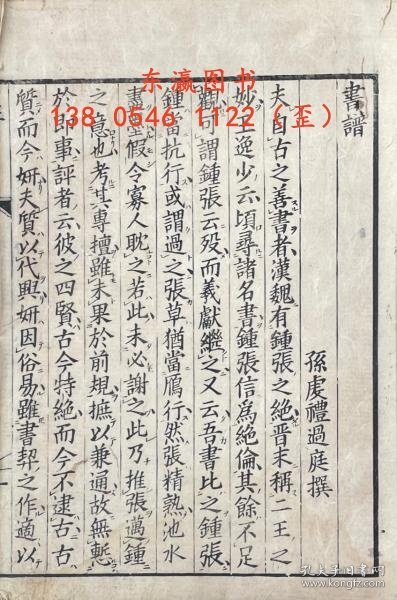 書譜
孫虔禮過庭撰
夫自古之善書者漢魏有鍾張之絕晉末稱二王之
妙王逸少云頃尋諸名書鍾張信為絕倫其餘不足
觀可謂鍾張云歿而羲獻繼之又云吾書比之鍾張
鍾當抗行或謂過之張草猶當鴈行然張精熟池水
盡墨假令寡人耽之若此未必謝之此乃推張邁鍾
之意也考其專擅雖未果於前規摭以兼通故無慙
於即事評者云彼之四賢古今特絕而今不逮古古
質而今妍夫質以代興妍因俗易雖書契之作適以
东瀛图书
138 0546 1122（歪）
孔夫子旧书网
kongfz.com